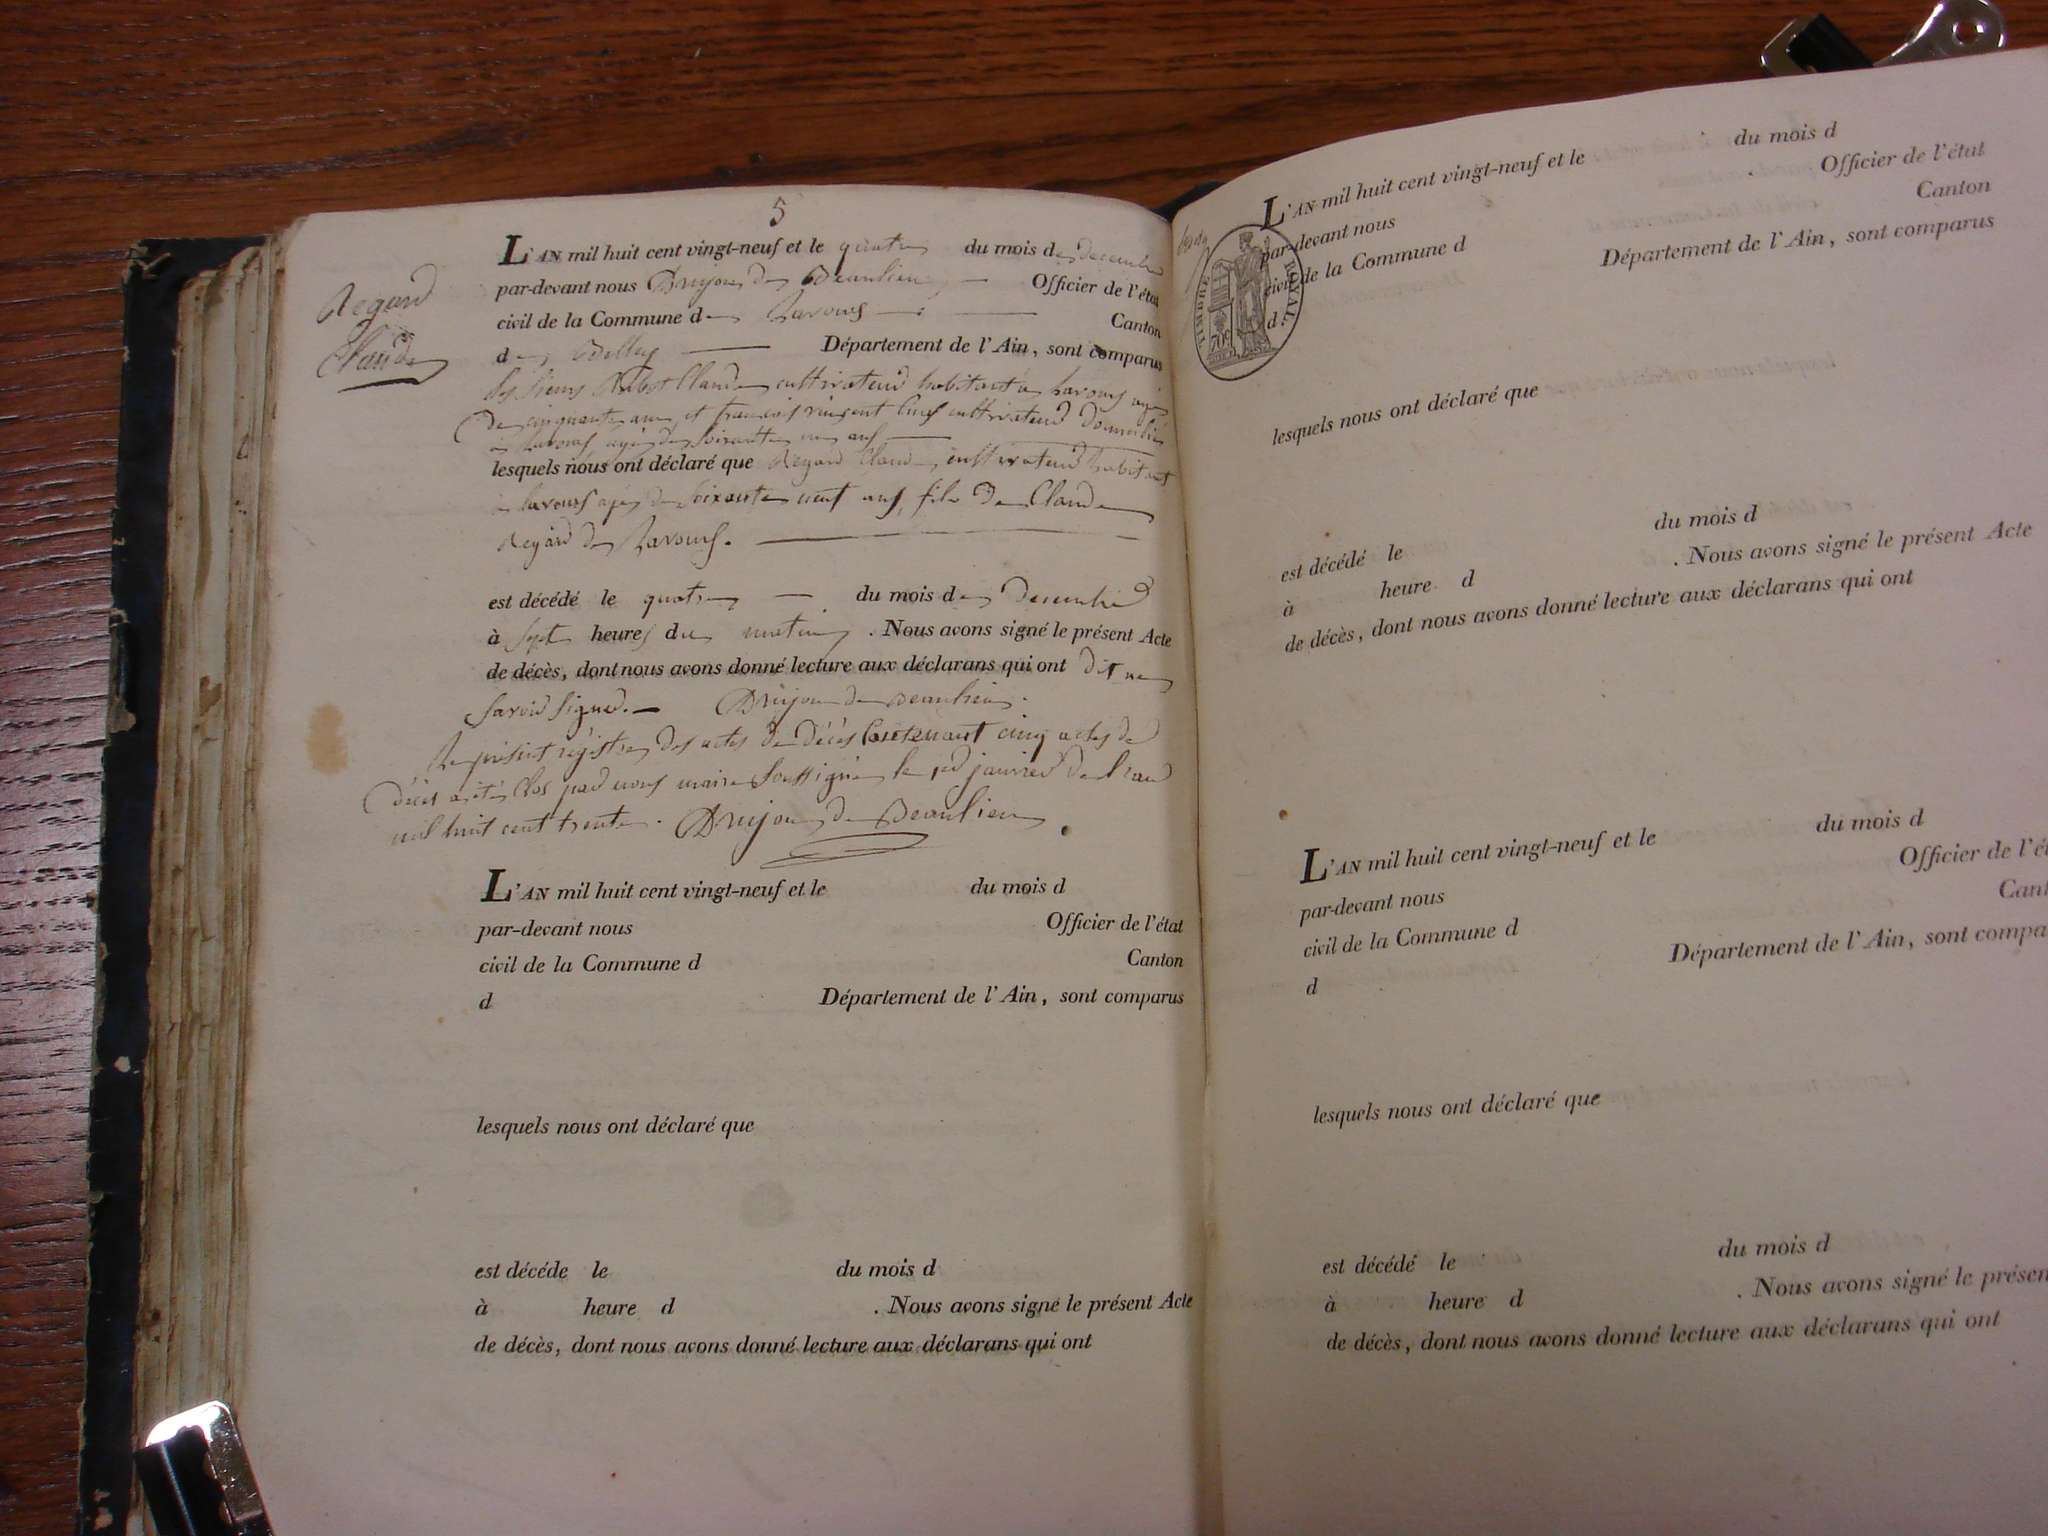 5
Regard
Claude
L'AN mil huit cent vingt-neuf et le quatre du mois de decembre
par-devant nous Drujon de Beaulieu Officier de l'état
civil de la Commune de Lavours Canton
de Belley Département de l'Ain, sont comparus
les sieurs Claude cultivateur habitant à Lavours agé
de cinquante ans et francois vincent cultivateur domicilié
à Lavours agé de soixante un ans
lesquels nous ont déclaré que Regard Claude cultivateur habitant
à Lavours agé de soixante neuf ans, fils de Claude
Regard de Lavours.
est décédé le quatre du mois de decembre
à sept heures du matin. Nous avons signé le présent Acte
de décès, dont nous avons donné lecture aux déclarans qui ont dit ne
savoir signer. Drujon de Beaulieu.
Le présent régistre des actes de décès contenant cinq actes de
décès a été clos par nous maire soussigné le pr janvier de l'an
mil huit cent trente. Drujon de Beaulieu
L'AN mil huit cent vingt-neuf et le du mois d
par-devant nous Officier de l'état
civil de la Commune d Canton
d Département de l'Ain, sont comparus
lesquels nous ont déclaré que
est décéde le du mois d
à heure d . Nous avons signé le présent Acte
de décès, dont nous avons donné lecture aux déclarans qui ont
TIMBRE ROYAL
70c
L'AN mil huit cent vingt-neuf et le du mois d
par-devant nous Officier de l'état
civil de la Commune d Canton
d Département de l'Ain, sont comparus
lesquels nous ont déclaré que
est décédé le du mois d
à heure d . Nous avons signé le présent Acte
de décès, dont nous avons donné lecture aux déclarans qui ont
L'AN mil huit cent vingt-neuf et le du mois d
par-devant nous Officier de l'ét
civil de la Commune d Cant
d Département de l'Ain, sont compa
lesquels nous ont déclaré que
est décédé le du mois d
à heure d . Nous avons signé le présen
de décès, dont nous avons donné lecture aux déclarans qui ont